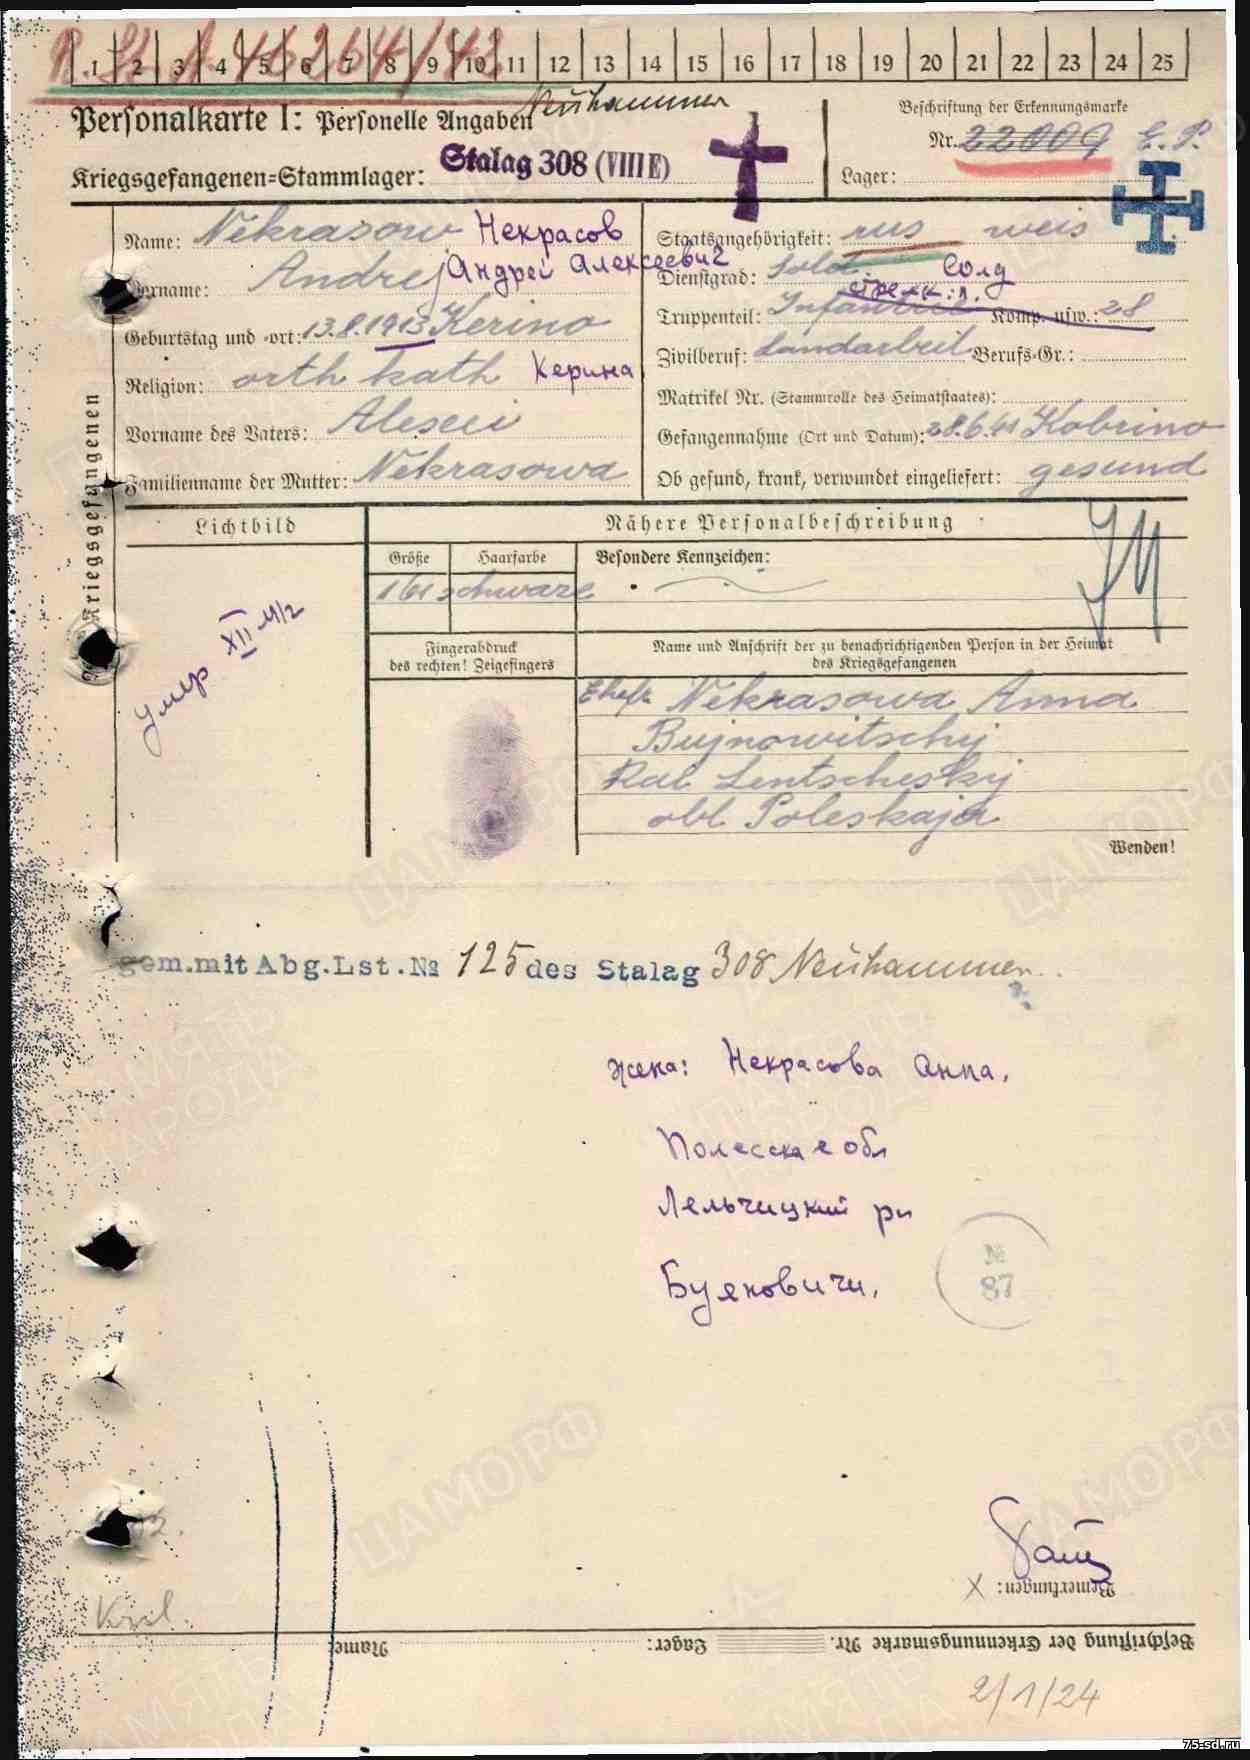 R. St. A. 46264/42
1 2 3 4 5 6 7 8 9 10 11 12 13 14 15 16 17 18 19 20 21 22 23 24 25
Neuhammer
Personalkarte I: Personelle Angaben
Kriegsgefangenen=Stammlager: Stalag 308 (VIII E)
Beschriftung der Erkennungsmarke
Nr. 22009
Lager:
Kriegsgefangenen
Name: Nekrasow Некрасов
Vorname: Andrej Андрей Алексеевич
Geburtstag und =ort: 13.8.1913 Kerino
Religion: orth kath Керина
Vorname des Vaters: Alexei
Familienname der Mutter: Nekrasowa
Staatsangehörigkeit: rus weis
Dienstgrad: Sold. Солд
Truppenteil: Infanterie Komp. usw.: 28
Zivilberuf: Landarbeit Berufs=Gr.:
Matrikel Nr. (Stammrolle des Heimatstaates):
Gefangennahme (Ort und Datum): 28.6.41 Kobrino
Ob gesund, krank, verwundet eingeliefert: gesund
Lichtbild
Nähere Personalbeschreibung
Größe Haarfarbe Besondere Kennzeichen:
161 schwarz
умер XII 42
Fingerabdruck
des rechten! Zeigefingers
Name und Anschrift der zu benachrichtigenden Person in der Heimat
des Kriegsgefangenen
Ehefr Nekrasowa Anna
Bujnowitschij
Ral Lentscheskij
obl Poleskaja
Wenden!
gem.mit Abg.Lst.№ 125 des Stalag 308 Neuhammer
жена: Некрасова Анна.
Полесская обл
Лельчицкий рн
Буяновичи.
№
87
Bemerkungen: X
Beschriftung der Erkennungsmarke Nr. Lager: Name:
2/1/24
ЦАМО РФ
ПАМЯТЬ НАРОДА
75-sd.ru